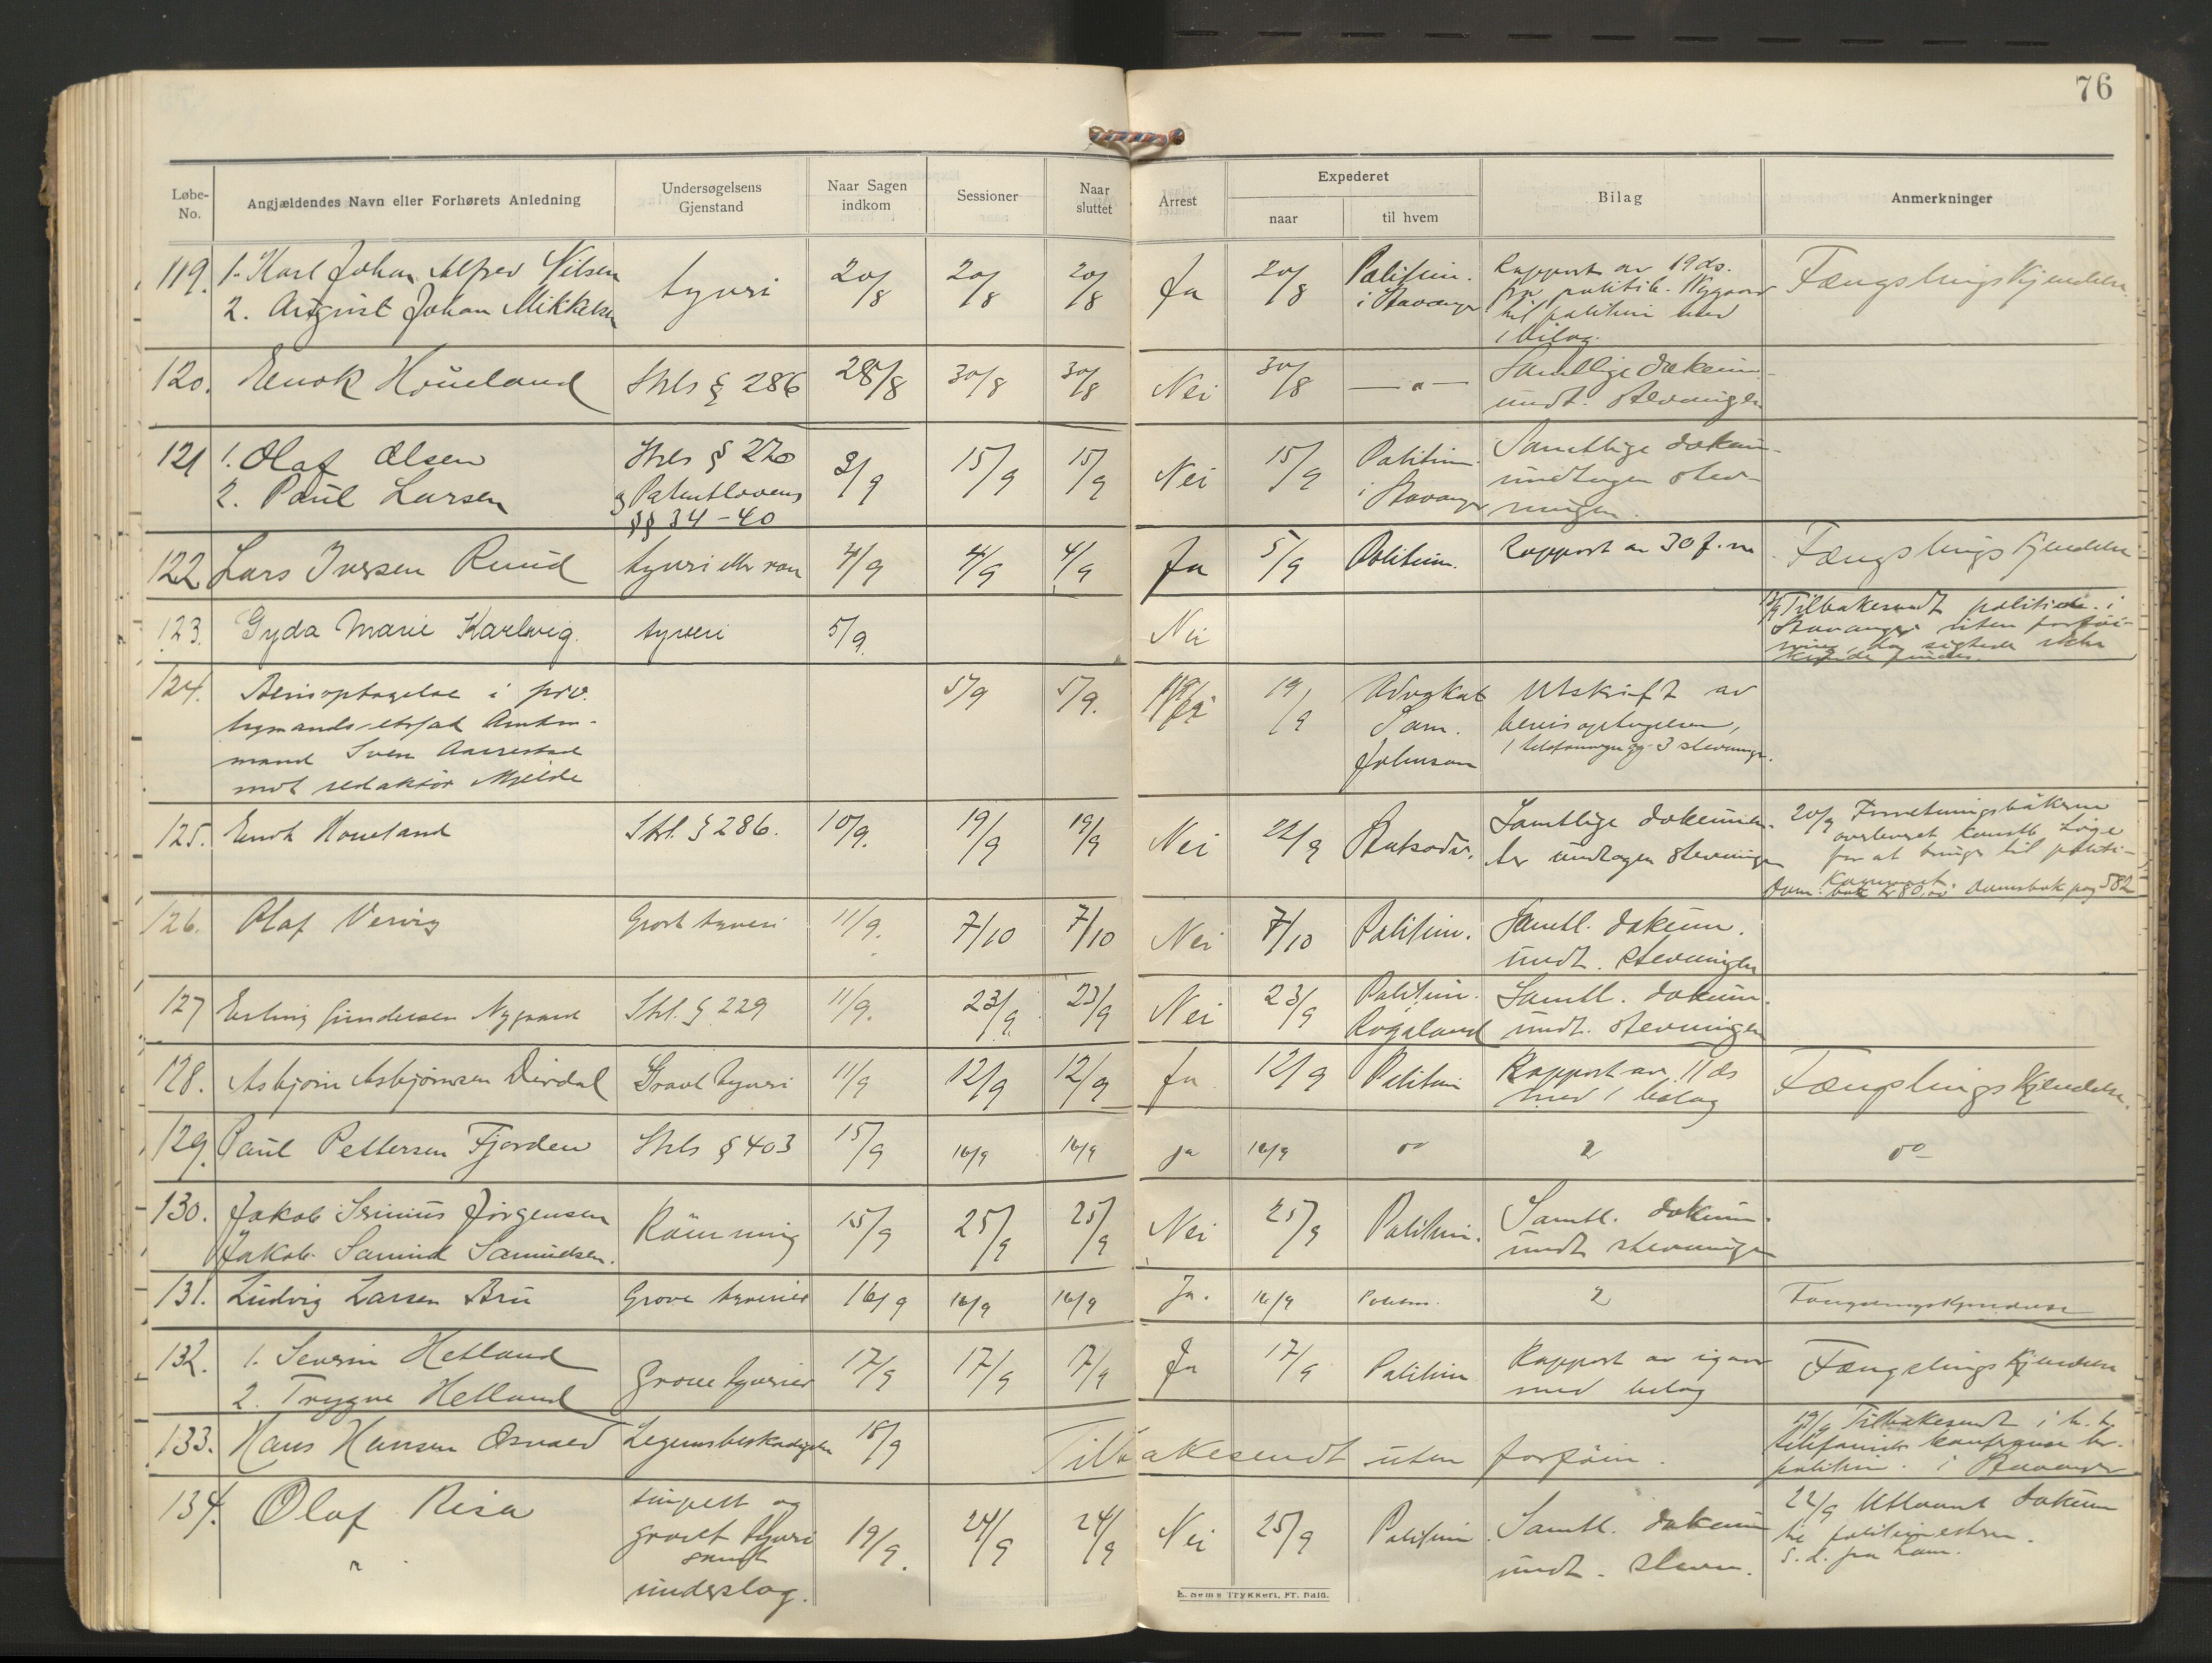 76
Løbe-No. Angjældendes Navn eller Forhørets Anledning Undersøgelsens Gjenstand Naar Sagen indkom Sessioner Naar sluttet Arrest Expederet naar til hvem Bilag Anmerkninger
119. 1. Karl Johan Alfred Nilsen
2. August Johan Mikkelsen
tyveri 20/8 20/8 20/8 Ja 20/8
Politim.
i Stavanger
Rapport av 19 ds.
fra politib. Nygaard
til politim med
1 bilag.
Fængslingskjendelse.
120. Enok Houeland Strls § 286 28/8 30/8 30/8 Nei 30/8 — " —
Samtlige dokum.
undt. stevningen
121 1. Olaf Olsen
2. Paul Larsen
Strls § 270
og Patentlovens
§§ 34-40
3/9 15/9 15/9 Nei 15/9
Politim.
i Stavanger
Samtlige dokum.
undtagen stev-
ningen.
122 Lars Iversen Ruud tyveri eller ran 4/9 4/9 4/9 Ja 5/9 Politim. Rapport av 30 f. m. Fængslingskjendelse
123. Gyda Marie Karlvig. tyveri 5/9. Nei
Tilbakesendt politim. i
Stavanger uten forføi-
ning, da sigtede ikke
124. Bevisoptagelse i priv.
mand Sven Aarrestad
mot redaktør Mjelde
5/9 5/9. Nei 19/9
Advokat
Sam.
Johnson
Utskrift av
bevisoptagelsen,
3 stevninger.
125. Enok Houeland Strl. § 286. 10/9. 19/9 19/9 Nei 22/9 Statsadv.
Samtlige dokumen-
ter undtagen stevningen
20/9 Forretningsbøkerne
overleveret konstb. Löge
for at bringe til politi-
kammeret.
Dom: bot kr 80,00. Domsbok pag 582
126. Olaf Vervig Grovt tyveri 11/9. 7/10 7/10 Nei 7/10 Politim.
Samtl. dokum.
undt. stevningen
127 Erling Gundersen Nygaard Strl. § 229 11/9. 23/9. 23/9 Nei 23/9
Politim.
Rogaland
Samtl. dokum.
undt. stevningen
128. Asbjørn Asbjørnsen Dirdal Grovt tyveri 11/9 12/9 12/9 Ja 12/9 Politim
Rapport av 11 ds
med 1 bilag
Fængslingskjendelse.
129. Paul Pettersen Fjorden Strls § 403 15/9 16/9 16/9 ja 16/9 do 2 do
130. Jakob Sirinius Jörgensen
Jakob Samund Samudsen.
Römning 15/9 25/9 25/9 Nei 25/9 Politim.
Samtl. dokum.
undt stevningen
131. Ludvig Larsen Bru Grove tyverier 16/9 16/9 16/9 Ja. 16/9 Politim. 2 Fængslingskjendelse
132. 1. Severin Hetland
2. Trygve Hetland
Grove tyverier 17/9 17/9 17/9 Ja 17/9 Politim
Rapport av igaar
med bilag
Fængslingskjendelse
133. Hans Hansen Osvaed Legemsbeskadigelse 18/9 Tilbakesendt uten forföin.
19/9 Tilbakesendt i h. t.
telefonisk konferanse m.
politim. i Stavanger
134. Olaf Risa
simpelt og
grovt tyveri
samt
underslag.
19/9. 24/9 24/9 Nei 25/9 Politim
Samtl. dokum
undt. stevn.
22/9 Utlaant dokum
til politimesteren.
s. d. fra ham.
E. Sems Trykkeri, Fr.hald.